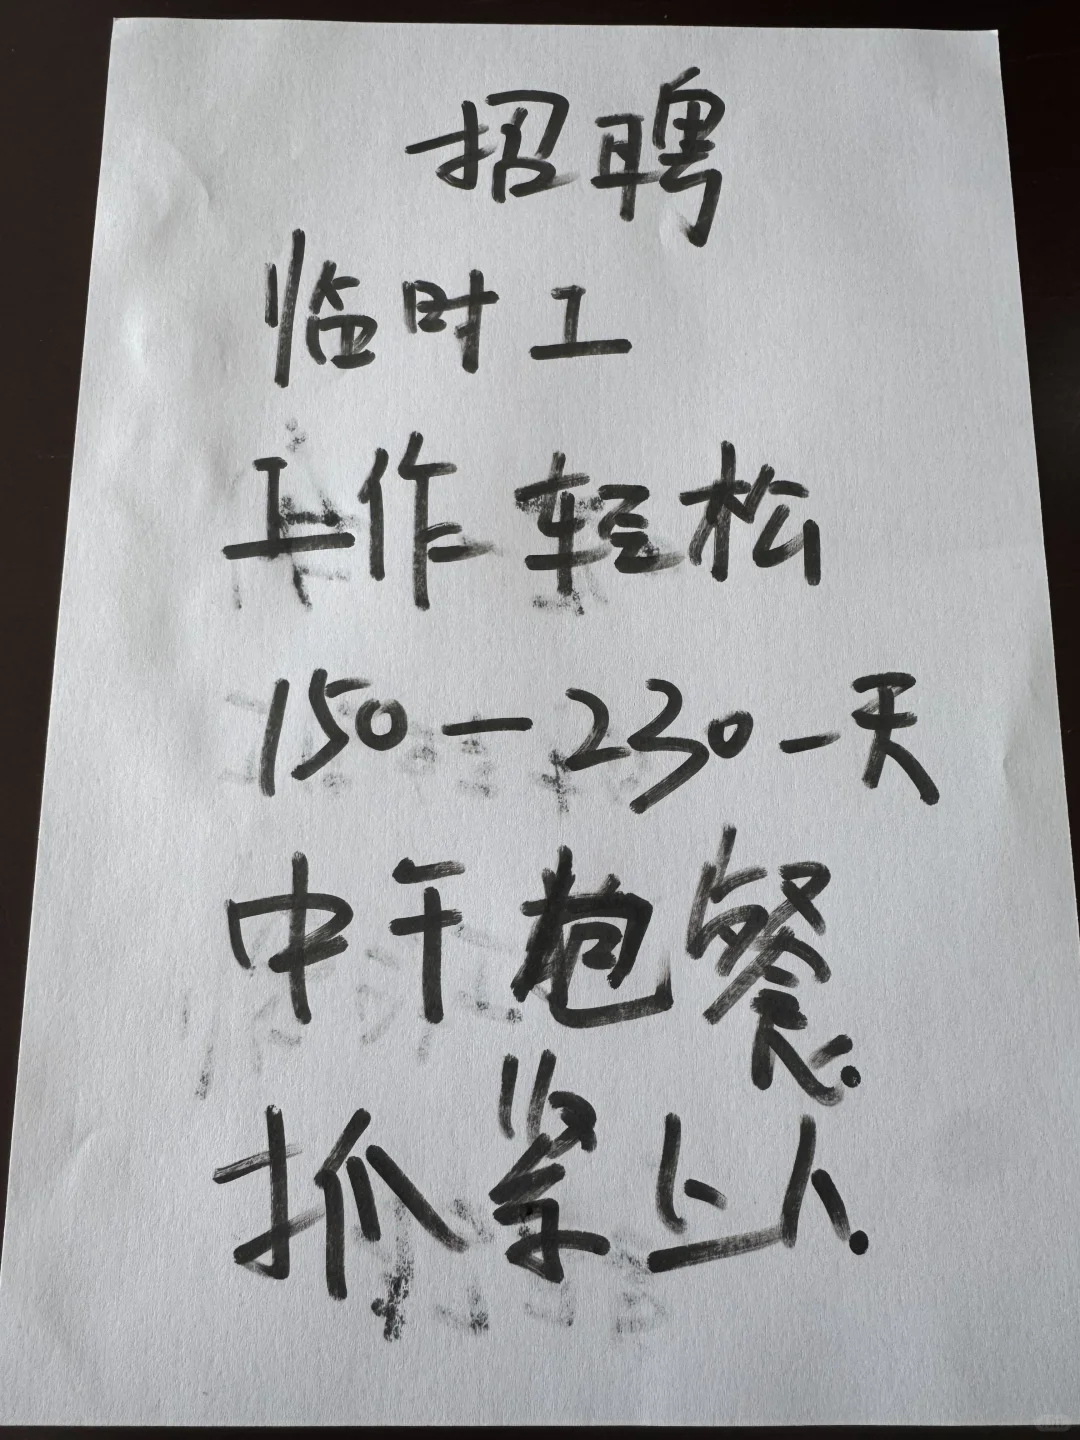 招聘
临时工
工作轻松
150一230一天
中午包餐.
抓紧上人.